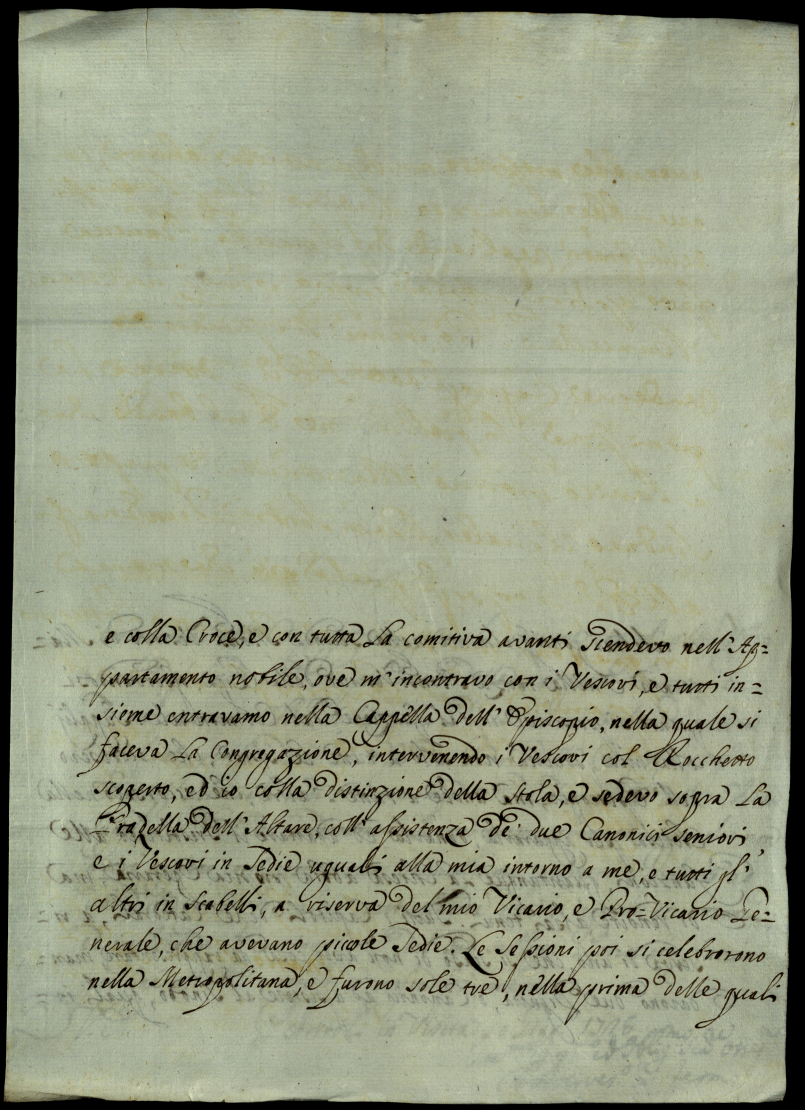 e colla Croce, e con tutta La comitiva avanti scendevo nell'Ap=
partamento nobile, ove m'incontravo con i Vescovi, e tutti in=
sieme entravamo nella Cappella dell'Episcopio, nella quale si
faceva La Congregazione, intervenendo i Vescovi col Rocchetto
scoperto, ed io colla distinzione della stola, e sedevo sopra La
Pradella dell'Altare, coll'assistenza de' due Canonici seniori
e i Vescovi in Sedie uguali alla mia intorno a me, e tutti gl'
altri in scabelli, a riserva del mio Vicario, e Pro=Vicario Ge=
nerale, che avevano picole Sedie. Le Sessioni poi si celebrorono
nella Metropolitana, e furono sole tre, nella prima delle quali